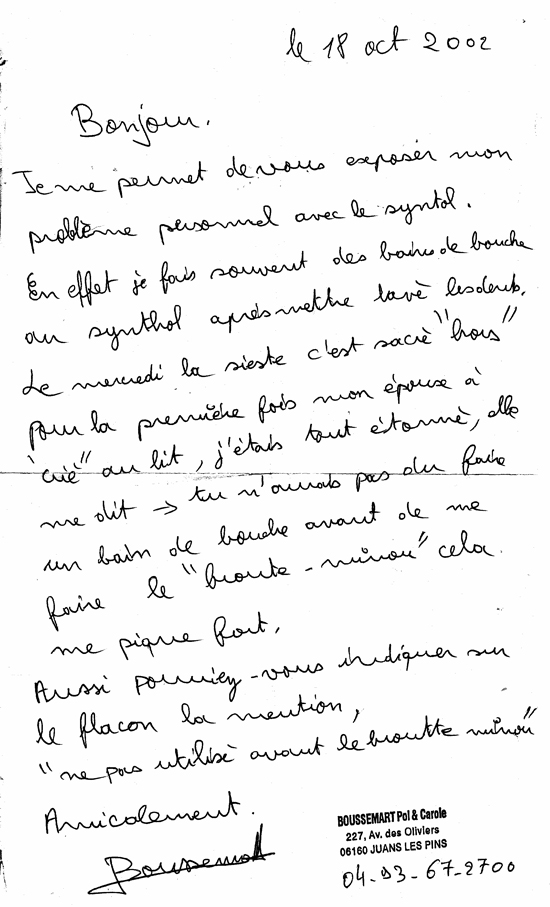 le 18 oct 2002
Bonjour.
Je me permet de vous exposer mon
problème personnel avec le syntol.
En effet je fais souvent des bains de bouche
au synthol après mettre lavè les dents.
Le mercredi la sieste c'est sacrè "hors"
pour la première fois mon épouse à
"crié" au lit, j'étais tout étonné, elle
me dit → tu n'aurais pas du faire
un bain de bouche avant de me
faire le "broute-minou" cela
me pique fort,
Aussi pourriey-vous indiquer sur
le flacon la mention,
"ne pas utilisè avant le broutte minou"
Amicalement.
Boussemart
BOUSSEMART Pol & Carole
227, Av. des Oliviers
06160 JUANS LES PINS
04-93-67-2700